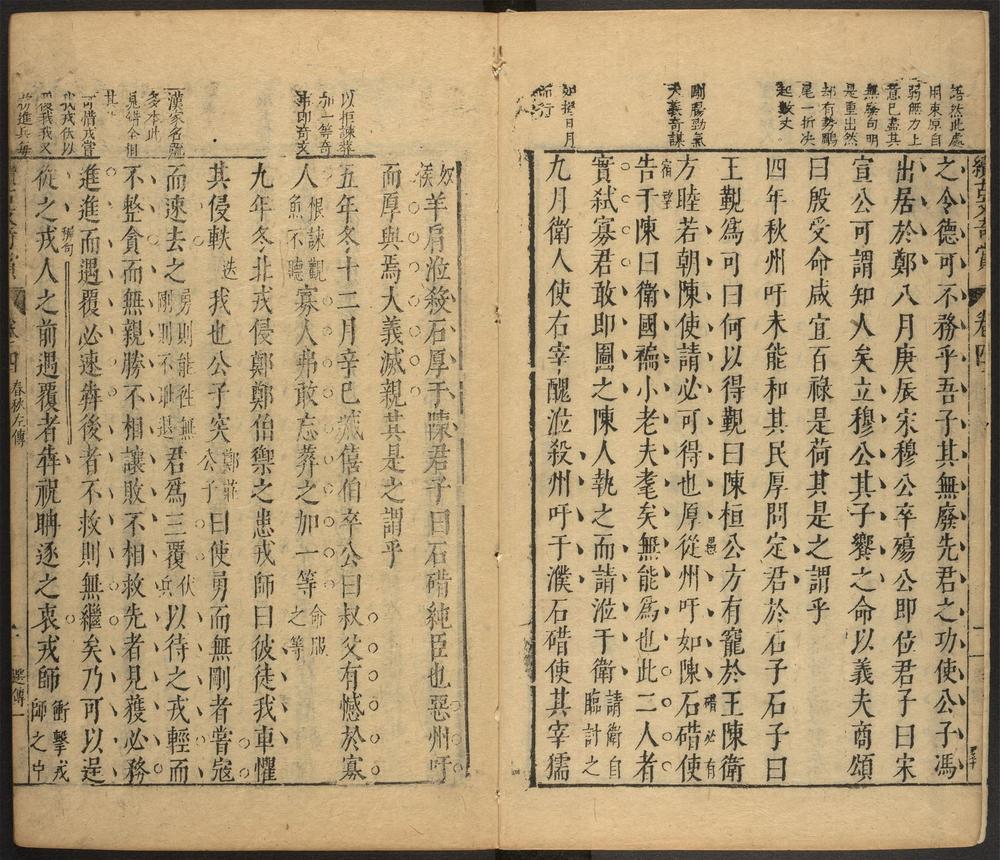 之令德可不務乎吾子其無廢先君之功使公子馮
出居於鄭八月庚辰宋穆公卒殤公即位君子曰宋
宣公可謂知人矣立穆公其子饗之命以義夫商頌
曰殷受命咸宜百祿是荷其是之謂乎
四年秋州吁未能和其民厚問定君於石子石子曰
王覲為可曰何以得覲曰陳桓公方有寵於王陳衛
方睦若朝陳使請必可得也厚從州吁如陳石碏使
告于陳曰衛國褊小老夫耄矣無能為也此二人者
實弒寡君敢即圖之陳人執之而請涖于衛請衛自臨討之
九月衛人使右宰醜涖殺州吁于濮石碏使其宰獳
羊肩涖殺石厚于陳君子曰石碏純臣也惡州吁
而厚與焉大義滅親其是之謂乎
五年冬十二月辛巳臧僖伯卒公曰叔父有憾於寡
人恨諫觀魚不聽寡人弗敢忘葬之加一等命服之等
九年冬北戎侵鄭鄭伯禦之患戎師曰彼徒我車懼
其侵軼迭我也公子突鄭莊公子曰使勇而無剛者嘗寇
而速去之勇則能往無剛則不恥退君為三覆伏兵以待之戎輕而
不整貪而無親勝不相讓敗不相救先者見獲必務
進進而遇覆必速奔後者不救則無繼矣乃可以逞
從之戎人之前遇覆者奔祝聃逐之衷戎師
卷四
春秋左傳
以拒諫葬
加一等奇
剛腸勁氣
大義奇謀
如揭日月